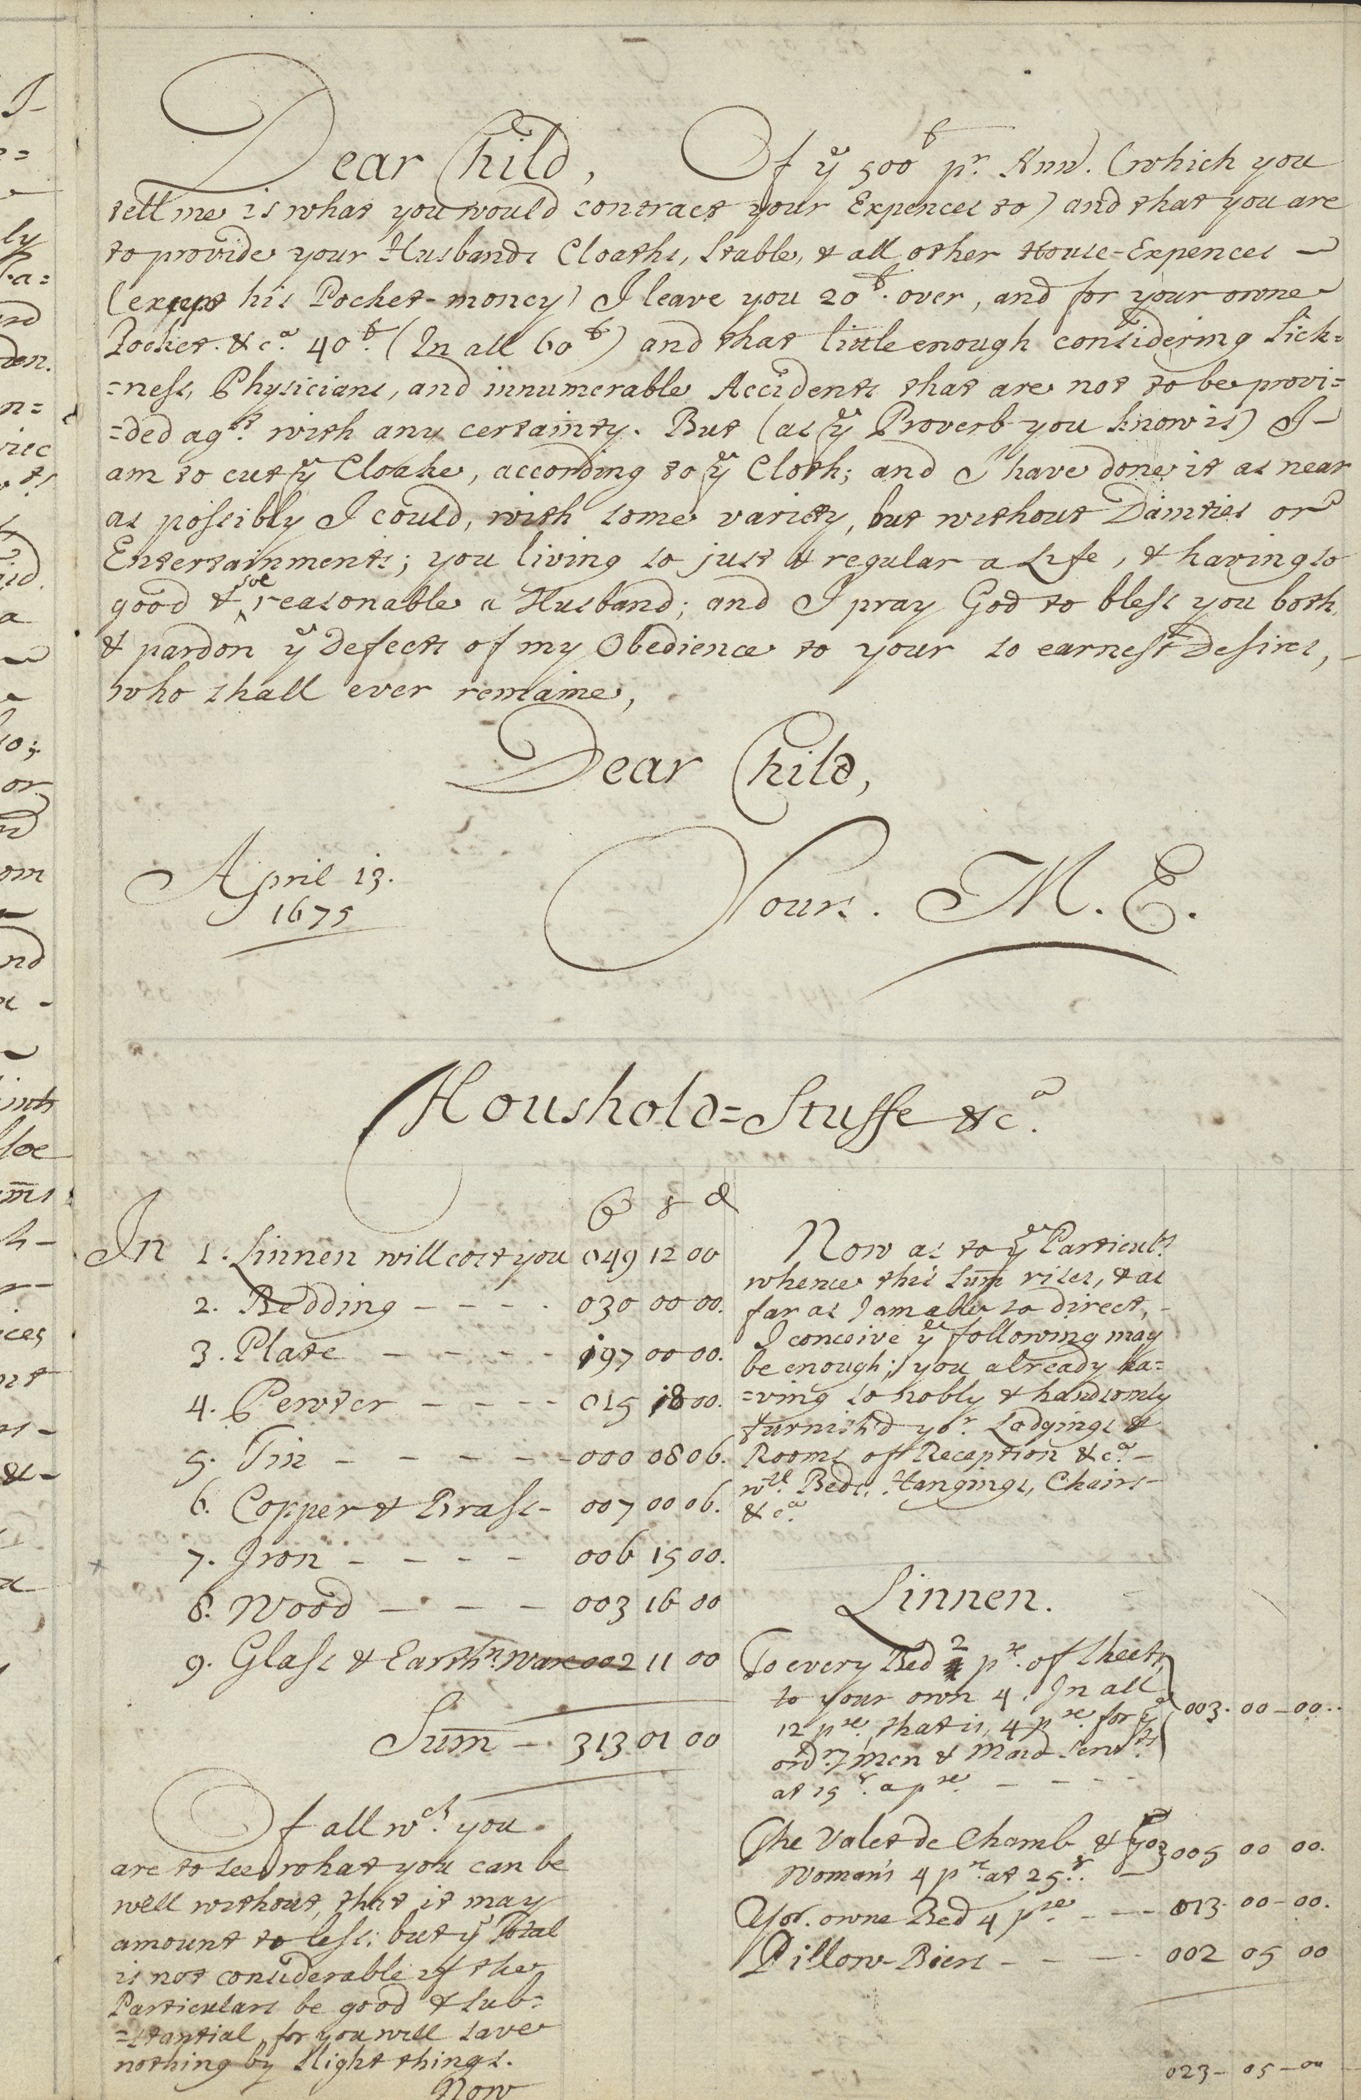 Dear Child, Of yᵉ 500ˡᵇ pʳ. Ann. (which you
tell me is what you would contract your Expences to) and that you are
to provide your Husbands Cloaths, Stable, & all other House-Expences —
(except his Pocket-money) I leave you 20ˡᵇ. over, and for your owne
Pocket. &cᵃ. 40ˡᵇ. (In all 60ˡᵇ) and that little enough considering Sick=
=ness, Physicians, and innumerable Accidents that are not to be provi=
=ded agˢᵗ. with any certainty. But (as yᵉ Proverb you know is) I —
am to cut yᵉ Cloake, according to yᵉ Cloth; and I have done it as near
as possibly I could, with some variety, but without Dainties or
Entertainments; you living so just & regular a Life, & having so
good & soe reasonable a Husband; and I pray God to bless you both,
& pardon yᵉ Defects of my Obedience to your so earnest Desires, —
who shall ever remaine,
Dear Child,
Yours. M. E.
April 13.
1675
Houshold=Stuffe &cᵃ.
lb s d
In 1. Linnen will cost you 049 12 00
2. Bedding - - - - 030 00 00.
3. Plate - - - - - 197 00 00.
4. Pewter - - - - 015 18 00.
5. Tin - - - - - 000 08 06.
6. Copper & Brass - 007 00 06.
7. Iron - - - - 006 15 00.
8. Wood - - - - 003 16 00
9. Glass & Earthⁿ. Ware 002 11 00
Sum - . 313 01 00
Of all wᶜʰ. you
are to see what you can be
well without, that it may
amount to less: but yᵉ Total
is not considerable if the
Particulars be good & sub=
=stantial, for you will save
nothing by slight things.
Now
Now as to yᵉ Particulʳˢ
whence this Sum rises, & as
far as I am able to direct, -
I conceive yᵉ following may
be enough; you already ha=
=ving so nobly & handsomly
furnish'd yoʳ. Lodgings &
Rooms of Reception &cᵃ -
wᵗʰ. Beds, Hangings, Chairs -
&cᵃ.
Linnen.
To every Bed 2 pʳᵉ. of Sheets,
to your own 4. In all
12 pʳᵉ, that is, 4 pʳᵉ. for yᵉ 003. 00 - 00..
ordʳʸ men & Maid Servᵗˢ
at 15ˢ. a pʳᵉ. - - - -
The Valet de Chamb & yoʳ 005 00 00.
Womans 4 pʳᵉ. at 25ˢ. -
Yoʳ. owne Bed 4 pʳᵉ. - - - 013. 00 - 00.
Pillow-Biers - - - - 002 05 00
023 - 05 - 00